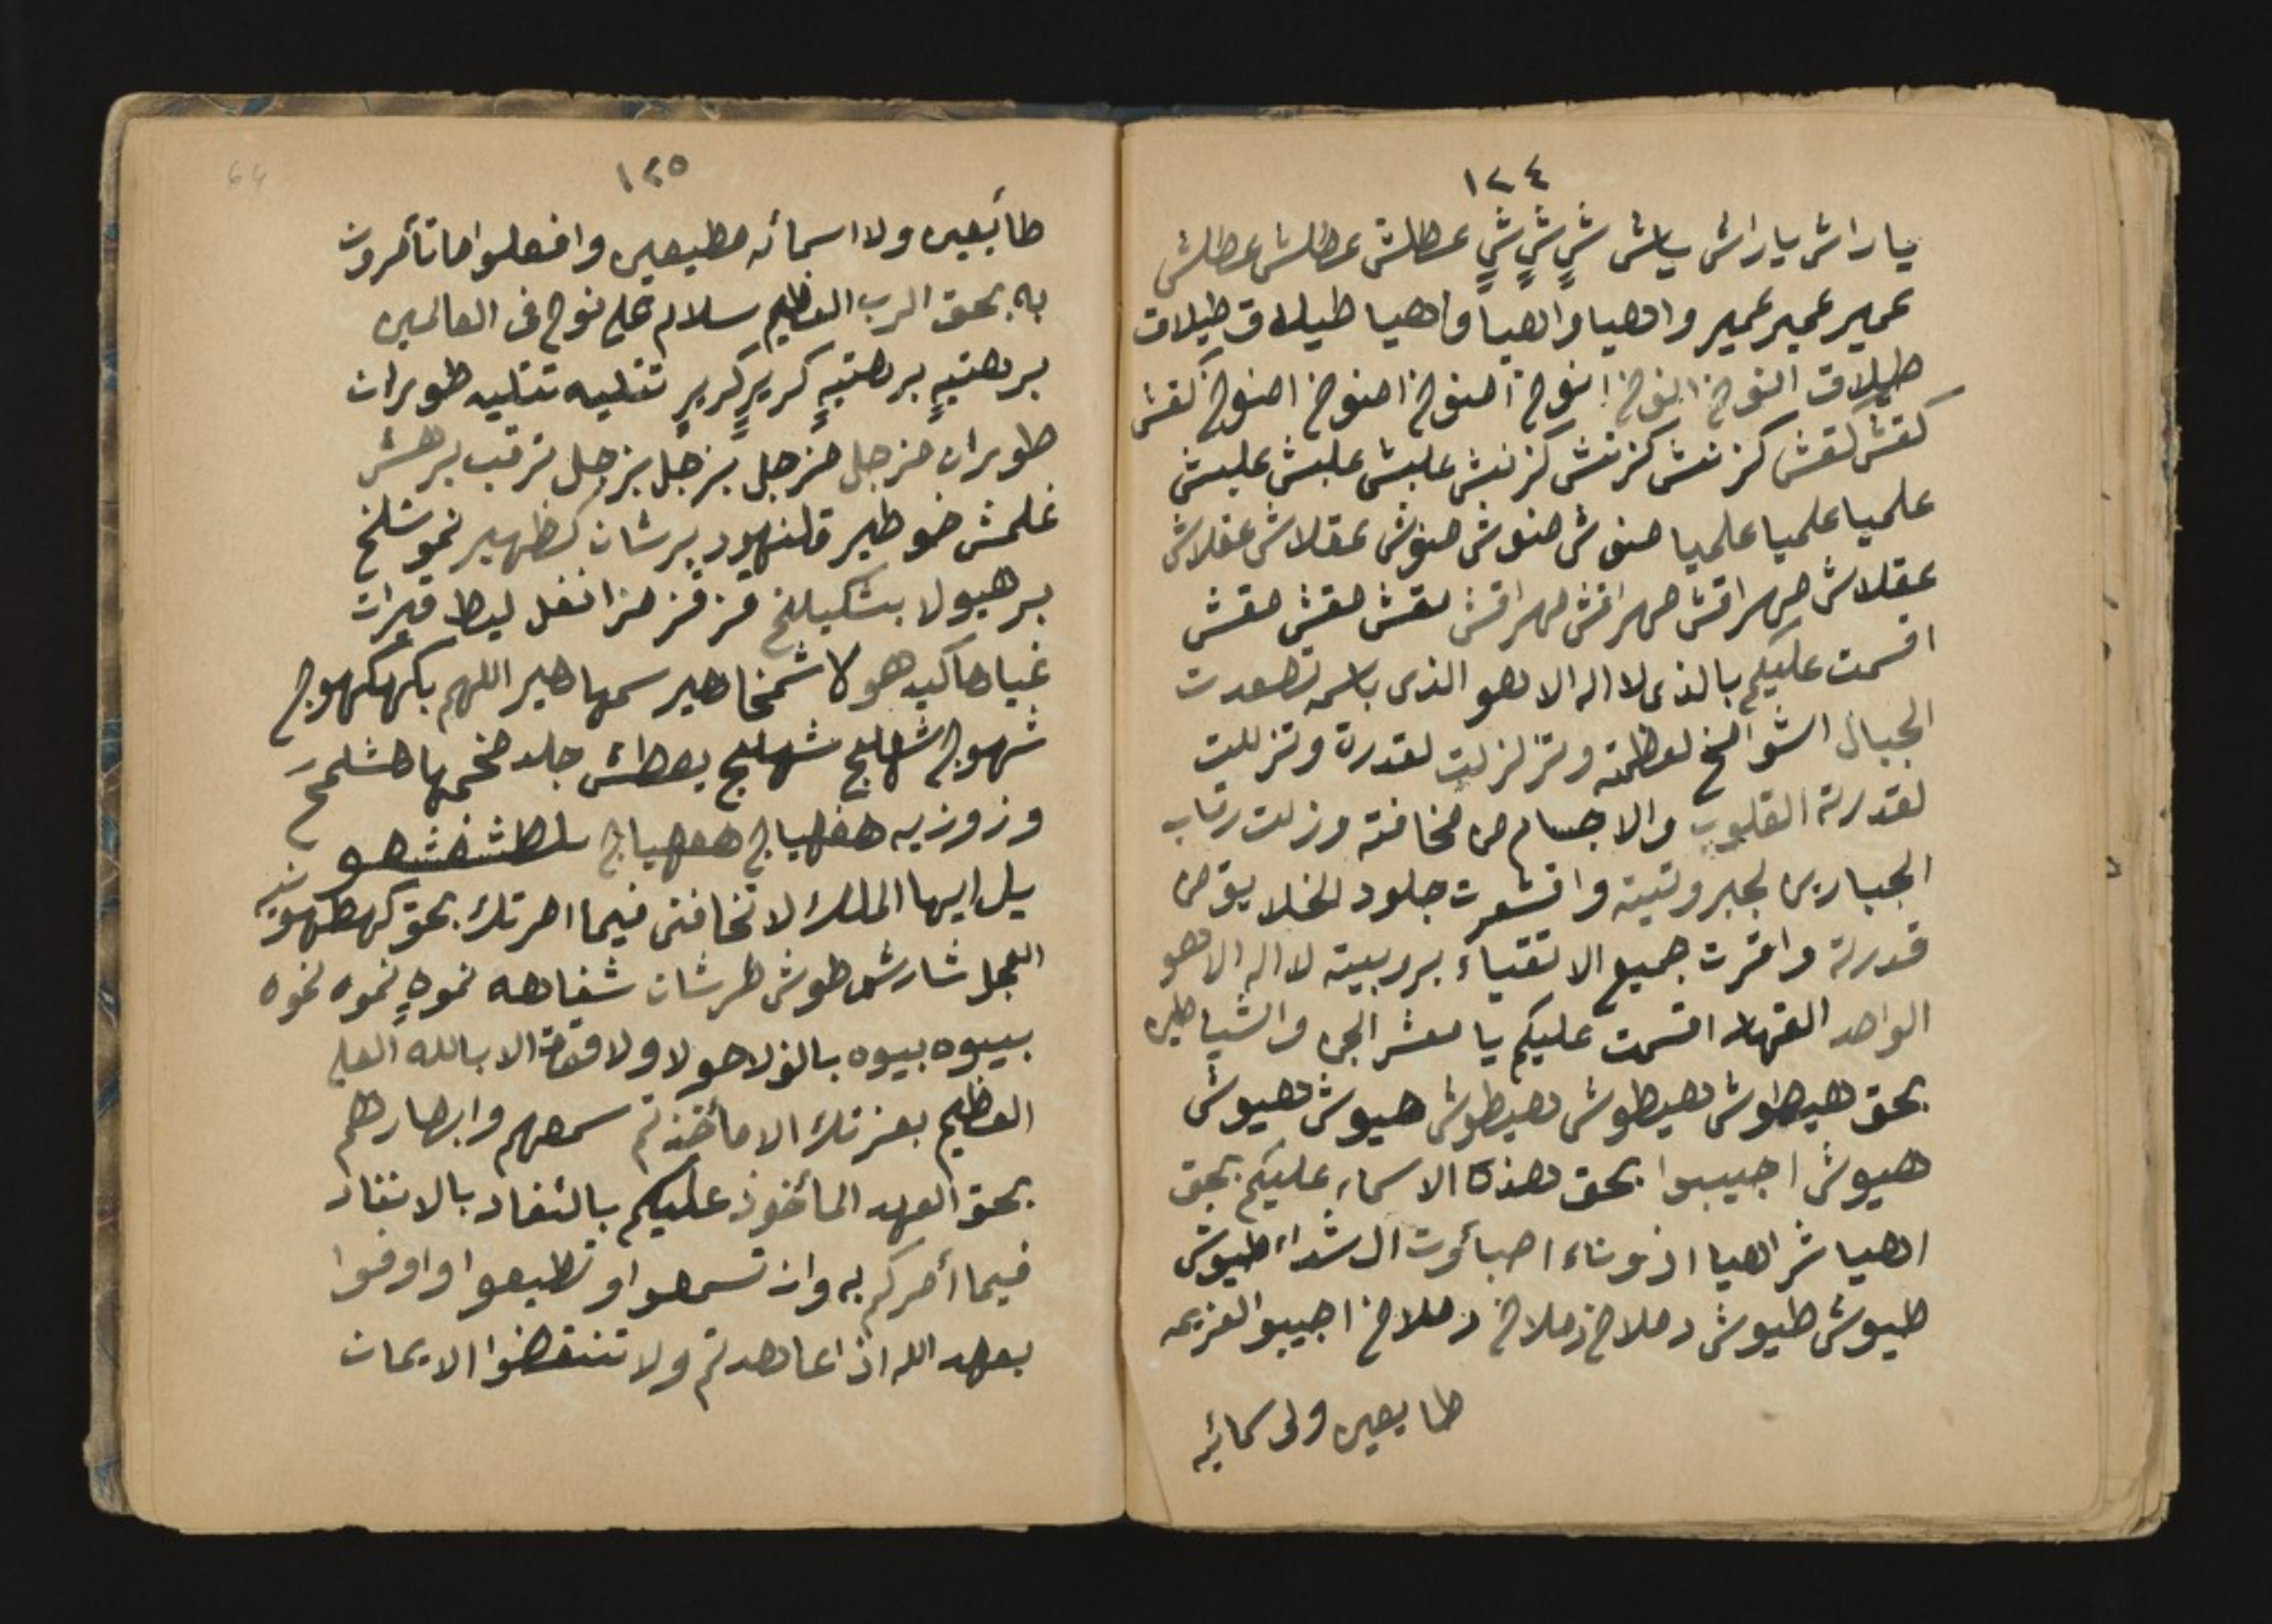 ١٢٤
ياراش ياراش ياش شٍ شٍ شٍ عطلش عطلش عطلش
عمير عمير عمير واهيا واهياً واهيا طيلاق طيلاق
طيلاق انوخ انوخ انوخ اصنوخ اصنوخ اصنوخ كفش
كفش كفش كزنش كزنش كزنش علبش علبش علبش
علميا علميا علميا صنوش صنوش صنوش عقلاش عقلاش
عقلاش مهراقش مهراقش مهراقش مقش مقش مقش
اقسمت عليكم بالذى لا اله الا هو الذى باسمه تصعدت
الجبال الشوامخ لعظمته وتزلزلت لقدرة وتزللت
لقدرته القلوب والاجسام من مخافته وزلت رقاب
الجبارين لجبروتيته واقشعرت جلود الخلايق من
قدرته واقرت جميع الاتقياء بروبيته لا اله الا هو
الواحد القهار اقسمت عليكم يا معشر الجن والشياطين
بحق هيطوش هيطوش هيطوش هيوش هيوش
هيوش اجيبوا بحق هذه الاسماء عليكم بحق
اهيا شراهيا اذوناء اصبأوت ال شداء طيوش
طيوش طيوش دملاخ دملاخ دملاخ اجيبوا لعزيمه
طايعين ولى سمائه
١٢٥
طائيعين ولا اسمائه مطيعين وافعلوا ما تأمرون
به بحق الرب العظيم سلام على نوح فى العالمين
برهتيهٍ برهتيهٍ كريرٍ كريرٍ تتليه تتليه طوران
طوران مزجل مزجل بزجل بزجل ترقب برهش
غلمش خوطير قلنهود برشان كظهير نموشلخ
برهيولا بشكيلخ قز قز مز انغل ليط قبرات
غياها كيدهولا شمخاهير سمهاهير اللهم بكهكهوج
شهوج شهلج شهلج يعطش جلد مخمها هشلمخ
وزوزيه هفهياج هفهياج بلطشغشهو
يل ايها الملك لا تخافنى فيما امرتك بحق كهطهونيه
العجل شارش طوش طرشان شفاهه نموهٍ نموه نموه
بيبوه بيبوه بالولا حولا ولا قوة الا بالله العلى
العظيم بعزتك الا ما أخذتم سمعهم وابصارهم
بحق العهد المأخوذ عليكم بالنفاد بالانفاد
فيما أمركم به وان تسمعوا وتطيعوا واوفوا
بعهد الله اذا عاهدتم ولا تنقضوا الايمان
64